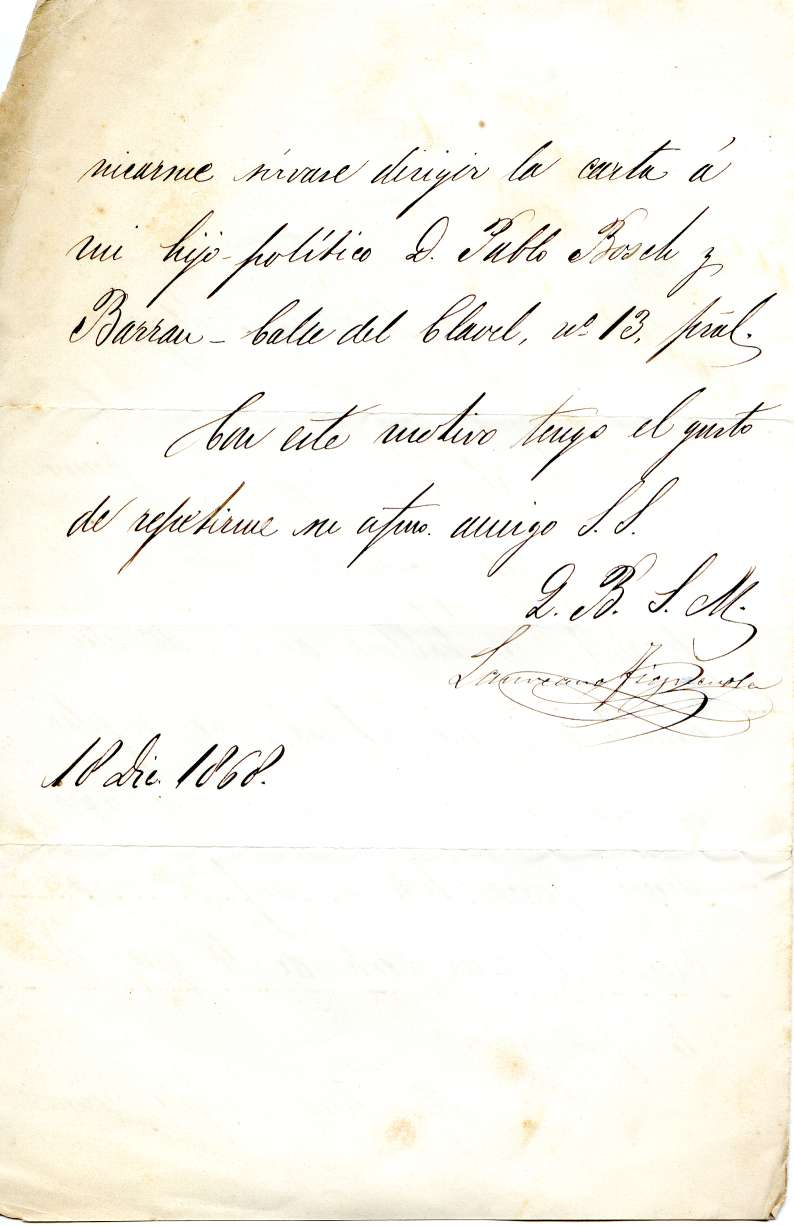 nicarme sírvase dirigir la carta á
mi hijo-político D. Pablo Bosch y
Barrau - Calle del Clavel, nº 13, pral.
Con este motivo tengo el gusto
de repetirme su afmo. amigo S. S.
Q. B. S. M.
Laureano Figuerola
18 Dic. 1868.